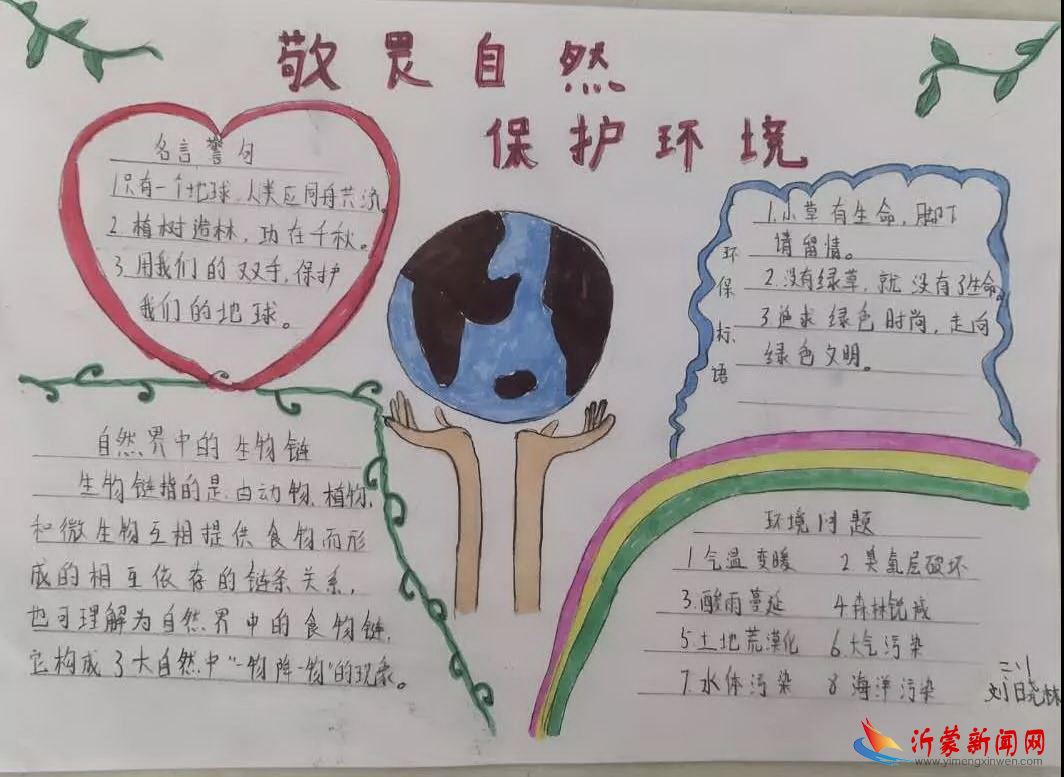 敬畏自然
保护环境
名言警句
1只有一个地球,人类应同舟共济。
2.植树造林,功在千秋。
3.用我们的双手,保护
我们的地球。
环保标语
1.小草有生命,脚下
请留情。
2.没有绿草,就没有了生命。
3.追求绿色时尚,走向
绿色文明。
自然界中的生物链
生物链指的是:由动物、植物、
和微生物互相提供食物而形
成的相互依存的链条关系,
也可理解为自然界中的食物链,
它构成了大自然中“一物降一物”的现象。
环境问题
1气温变暖 2.臭氧层破坏
3.酸雨蔓延 4.森林锐减
5.土地荒漠化 6.大气污染
7.水体污染 8海洋污染
三·1
刘晓林
沂蒙新闻网
www.yimengxinwen.com